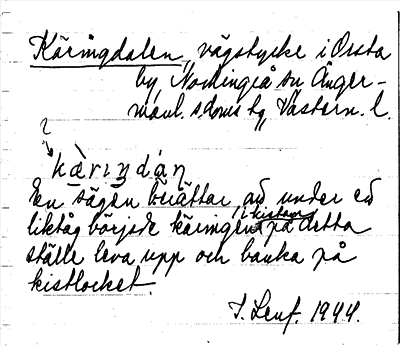 Käringdalen, vägstycke i Orsta
by, Nordingrå sn Ånger-
manl. s. doms. hg, Västern. l.
?
kæ̀rıŋdáɳ
En sägen berättar, att under ett
liktåg började käringen i kistan på detta
ställe leva upp och banka på
kistlocket.
1944.